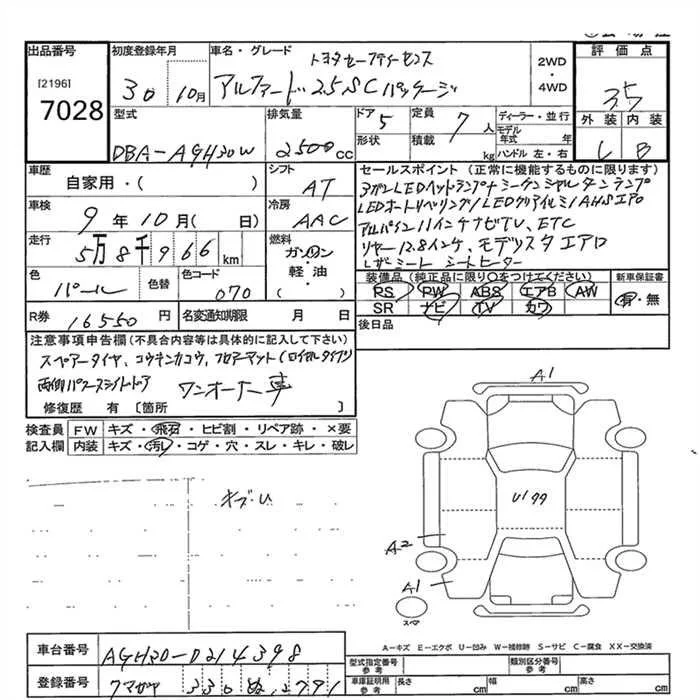 出品番号
[2196]
7028
初度登録年月
30 10月
車名・グレード
トヨタセーフティーセンス
アルファード 2.5 SCパッケージ
2WD
・
4WD
評価点
3.5
外装 内装
C B
型式
DBA-AGH30W
排気量
2500cc
ドア
5
形状
定員
7人
積載
kg
ディーラー・並行
モデル年式 年
ハンドル 左・右
車歴
自家用・( )
シフト
AT
車検
9年10月( 日)
冷房
AAC
走行
5万8千966km
燃料
ガソリン
・
軽油
( )
色
パール
色替
色コード
070
R券
16550円
名変通知期限 月 日
セールスポイント (正常に機能するものに限ります)
3ガンLEDヘッドランプ+シーケンシャルターンランプ
アルパイン11インチナビTV、ETC
リヤー12.8インチ、モデリスタエアロ
レザーシート シートヒーター
装備品 (純正品に限り○をつけてください)
PS PW ABS エアB AW
SR ナビ TV カワ
新車保証書
有・無
後日品
注意事項申告欄(不具合内容等は具体的に記入して下さい)
スペアータイヤ、コウキンカコウ、フロアーマット(ロイヤルタイプ)
両側パワースライドドア ワンオーナー車
修復歴 有 〔箇所 〕
検査員記入欄
FW キズ・飛石・ヒビ割・リペア跡・×要
内装 キズ・汚レ・コゲ・穴・スレ・キレ・破レ
キズ・U
A1
U199
A2
A1
スペア
A-キズ E-エクボ U-凹み W-補修跡 S-サビ C-腐食 XX-交換済
車台番号
AGH30-0214398
登録番号
330
2791
型式指定番号
参考
類別区分番号
参考
車庫証明用
参考
長さ cm
幅 cm
高さ cm